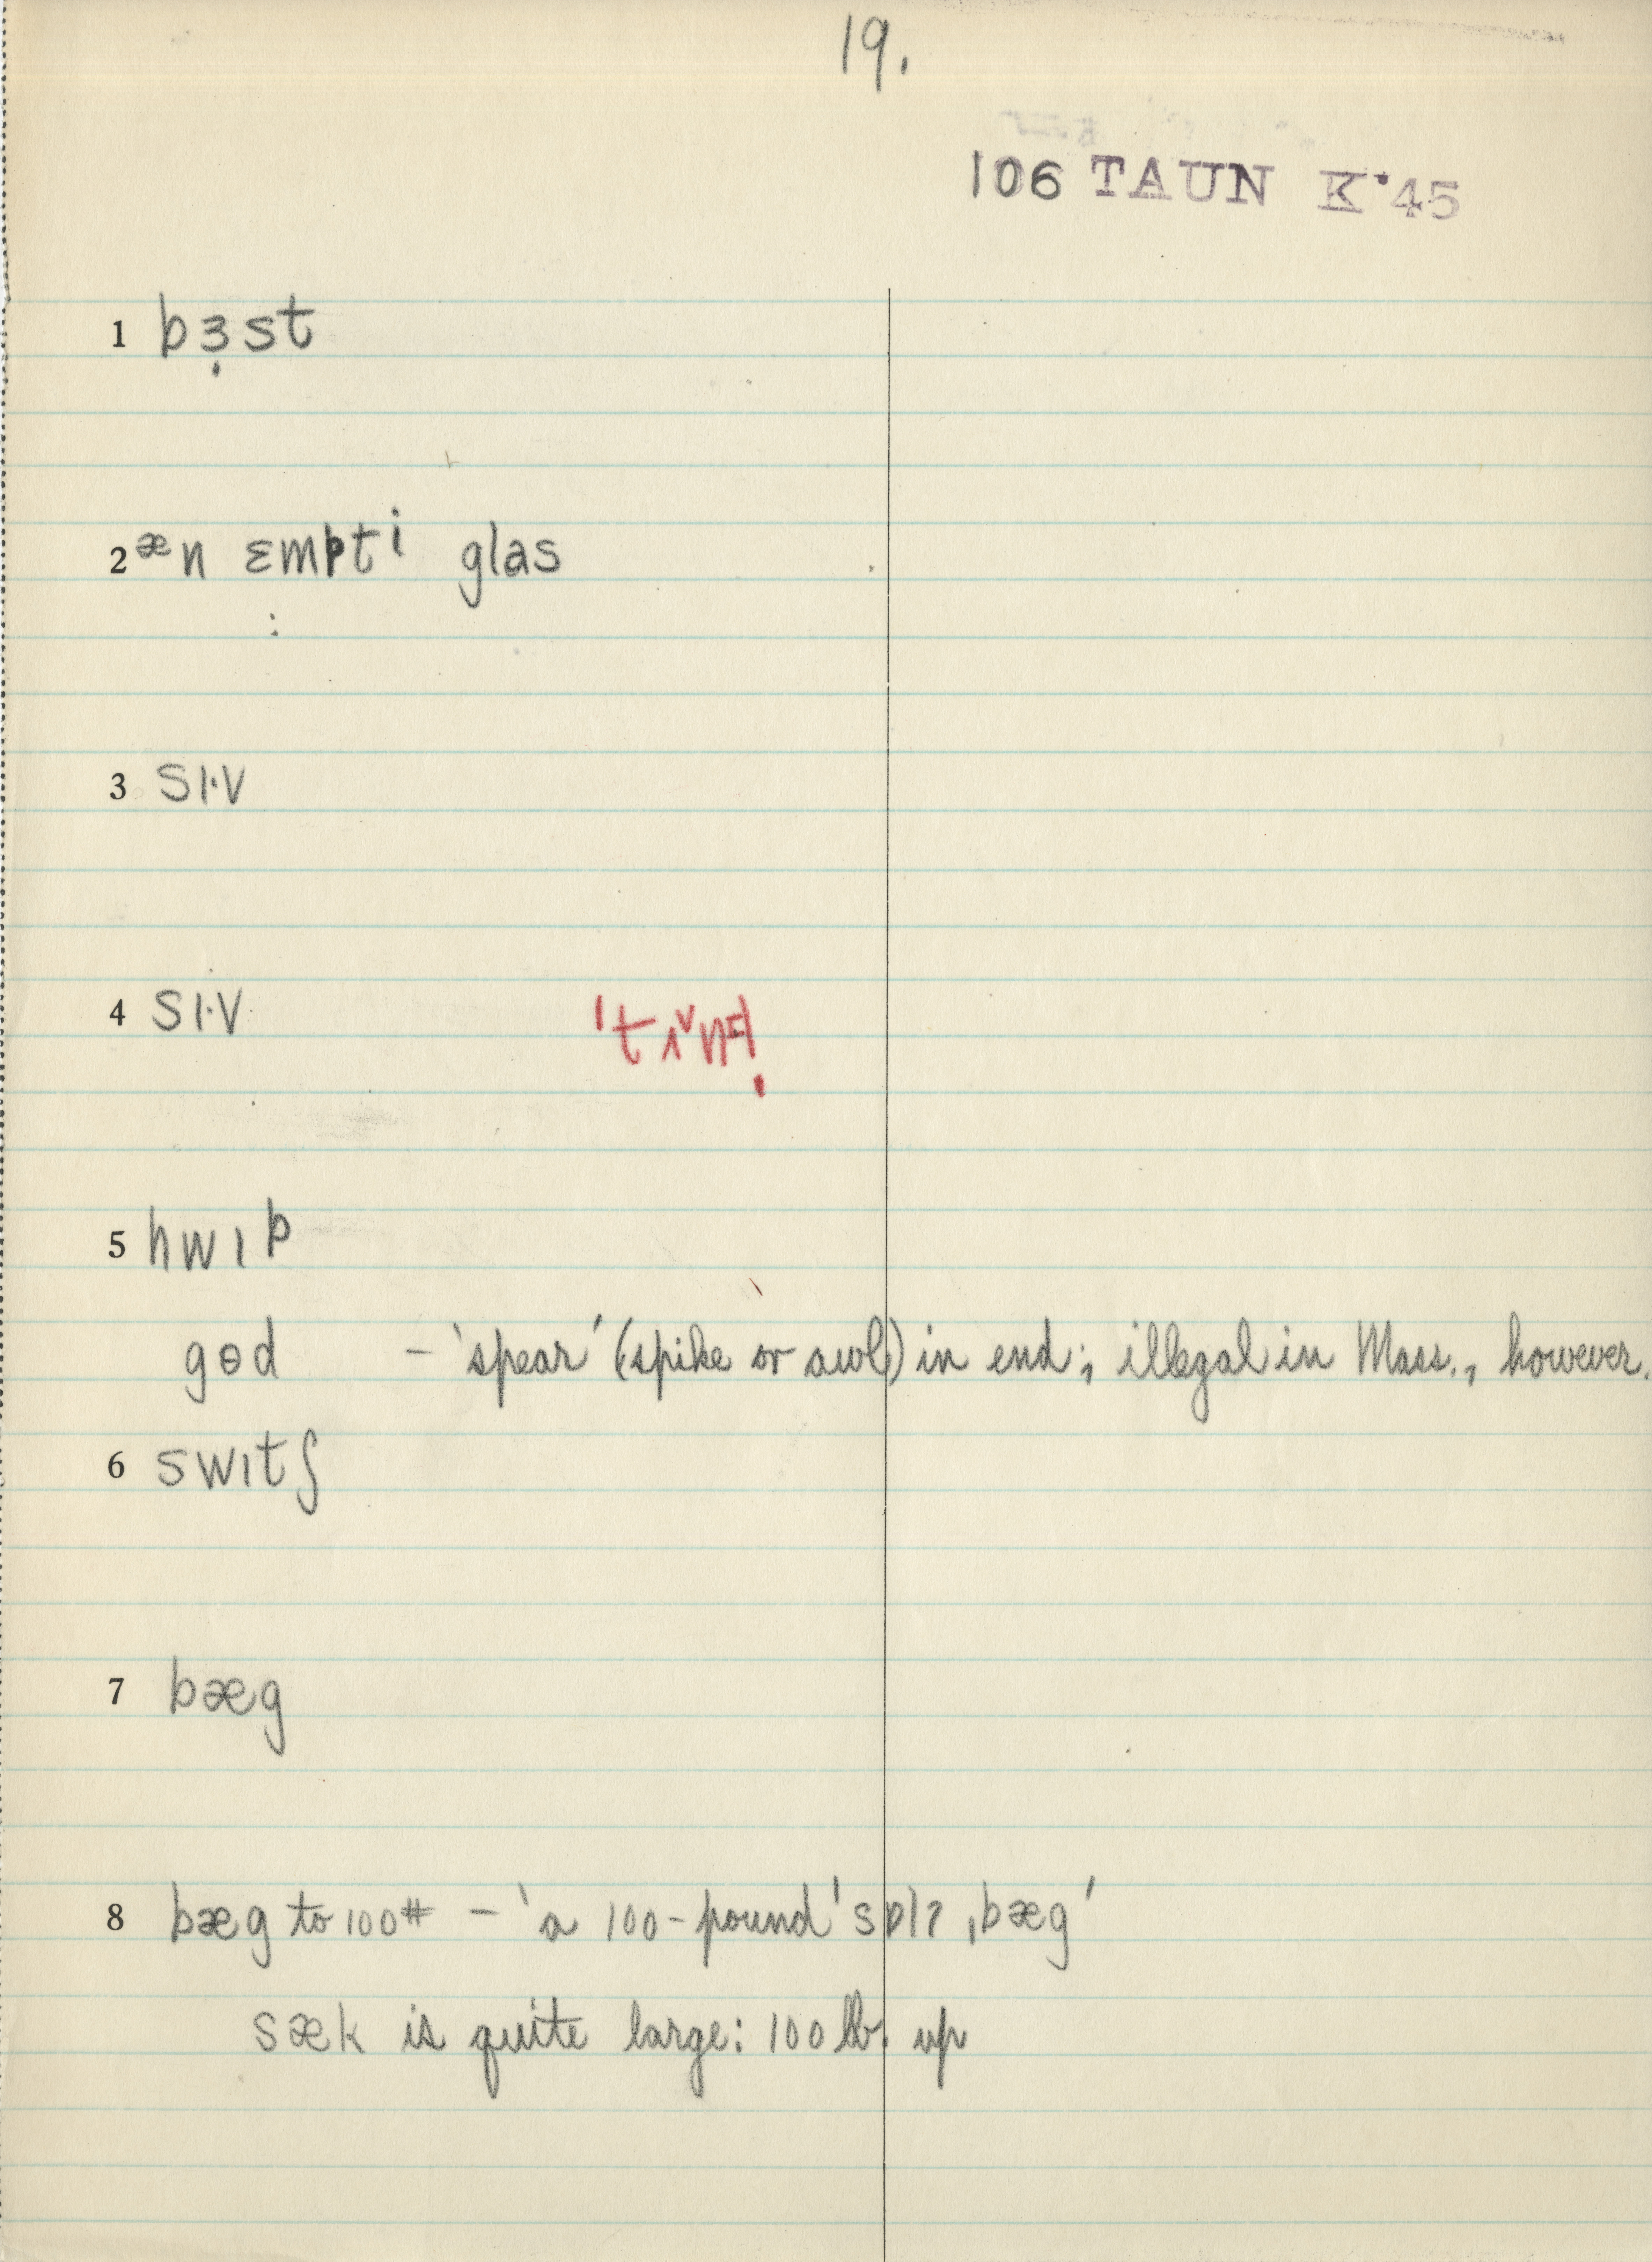 19.
106 TAUN K·45
1 bɜ̣st
2 æn ɛmpti glas
3 sɪ·v
4 sɪ·v
5 hwɪp
gɵd – 'spear' (spike or awl) in end; illegal in Mass., however.
6 swɪtʃ
7 bæg
8 bæg to 100# – 'a 100-pound ˈsɒlʔ ˌbæg'
sæk is quite large: 100 lb. up